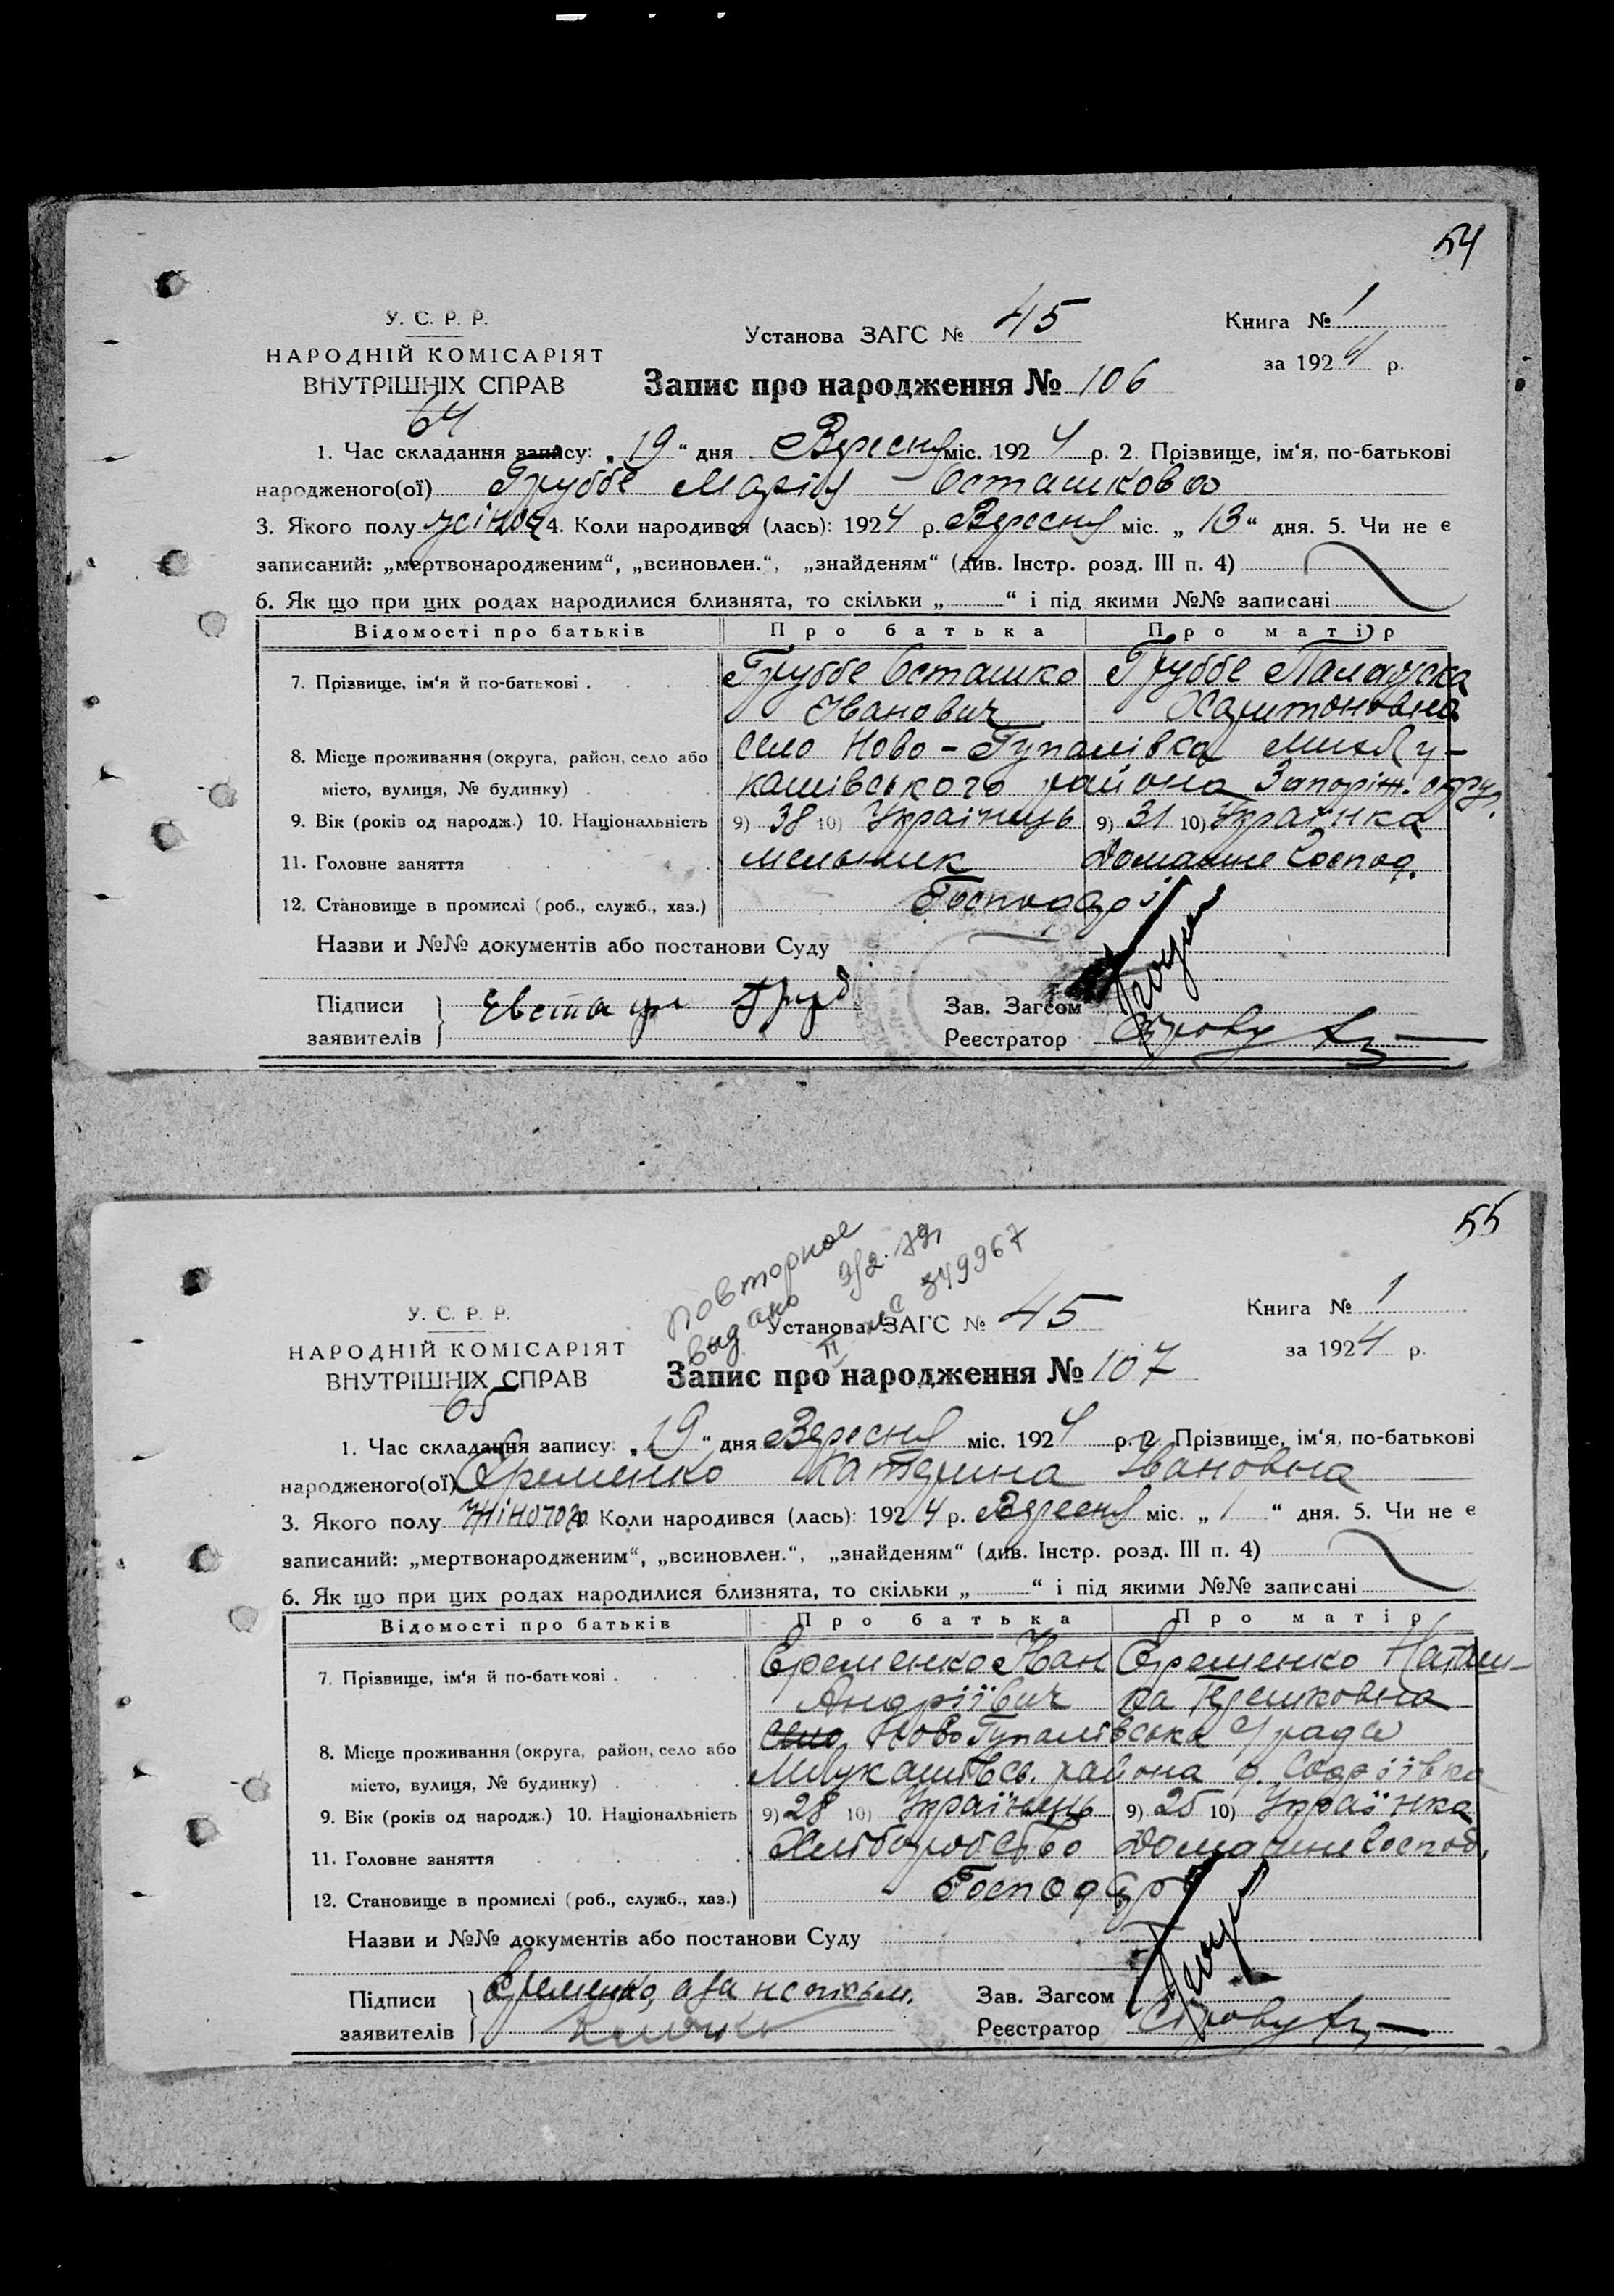 54
У. С. Р. Р.
НАРОДНІЙ КОМІСАРІЯТ
ВНУТРІШНІХ СПРАВ
64
Установа ЗАГС № 45
Книга № 1
за 1924 р.
Запис про народження № 106
1. Час складання запису: „19“ дня Вересня міс. 1924 р. 2. Прізвище, ім‘я, по-батькові
народженого(ої) Груббе Марія Осташкова
3. Якого полу жіноч 4. Коли народився (лась): 1924 р. Вересня міс. „13“ дня. 5. Чи не є
записаний: „мертвонародженим“, „всиновлен.“, „знайденям“ (див. Інстр. розд. III п. 4)
6. Як що при цих родах народилися близнята, то скільки „ “ і під якими №№ записані
Відомості про батьків Про батька Про матір
7. Прізвище, ім‘я й по-батькові . Груббе Осташко Груббе Палажка
Іванович Харитоновна
8. Місце проживання (округа, район, село або село Ново-Гупалівка
місто, вулиця, № будинку) . кашівського района Запоріж. округ.
9. Вік (років од народж.) 10. Національність 9) 38 10) Українець 9) 31 10) Українка
11. Головне заняття мельник Домашне Господ.
12. Становище в промислі (роб., служб., хаз.) Господарі
Назви и №№ документів або постанови Суду
Підписи заявителів
Зав. Загсом
Реєстратор
55
повторное
выдано 9/2.79г
II 349967
У. С. Р. Р.
НАРОДНІЙ КОМІСАРІЯТ
ВНУТРІШНІХ СПРАВ
65
Установа ЗАГС № 45
Книга № 1
за 1924 р.
Запис про народження № 107
1. Час складання запису: „19“ дня Вересня міс. 1924 р. 2. Прізвище, ім‘я, по-батькові
народженого(ої) Єременко Катерина Івановна
3. Якого полу жіночого 4. Коли народився (лась): 1924 р. Вересня міс. „1“ дня. 5. Чи не є
записаний: „мертвонародженим“, „всиновлен.“, „знайденям“ (див. Інстр. розд. III п. 4)
6. Як що при цих родах народилися близнята, то скільки „ “ і під якими №№ записані
Відомості про батьків Про батька Про матір
7. Прізвище, ім‘я й по-батькові . Єременко Іван Єременко Наташ-
Андріївич ка
8. Місце проживання (округа, район, село або село Ново Гупалівська
місто, вулиця, № будинку) . района
9. Вік (років од народж.) 10. Національність 9) 28 10) Українець 9) 25 10) Українка
11. Головне заняття Хліборобство Домашне Господ.
12. Становище в промислі (роб., служб., хаз.) Господарі
Назви и №№ документів або постанови Суду
Підписи заявителів Єременко, а за неписьм.
Зав. Загсом
Реєстратор